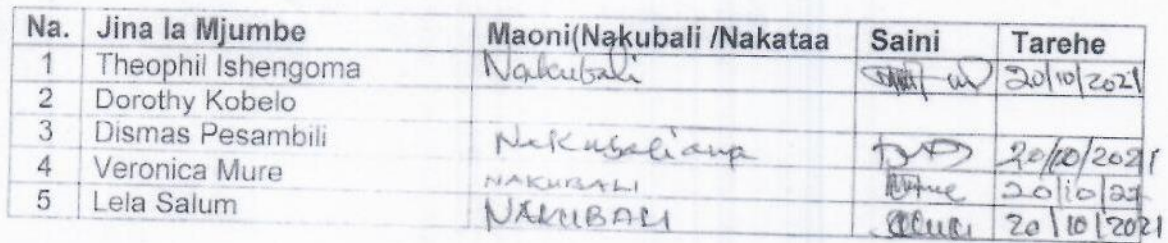 Na. Jina la Mjumbe Maoni(Nakubali /Nakataa Saini Tarehe
1 Theophil Ishengoma Nakubali 20/10/2021
2 Dorothy Kobelo
3 Dismas Pesambili Nakubaliana 20/10/2021
4 Veronica Mure NAKUBALI 20/10/21
5 Lela Salum NAKUBALI 20/10/2021